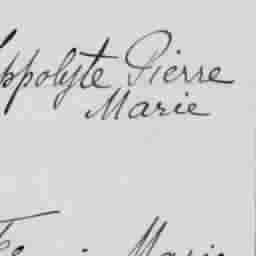 Hippolyte Pierre
Marie
Marie